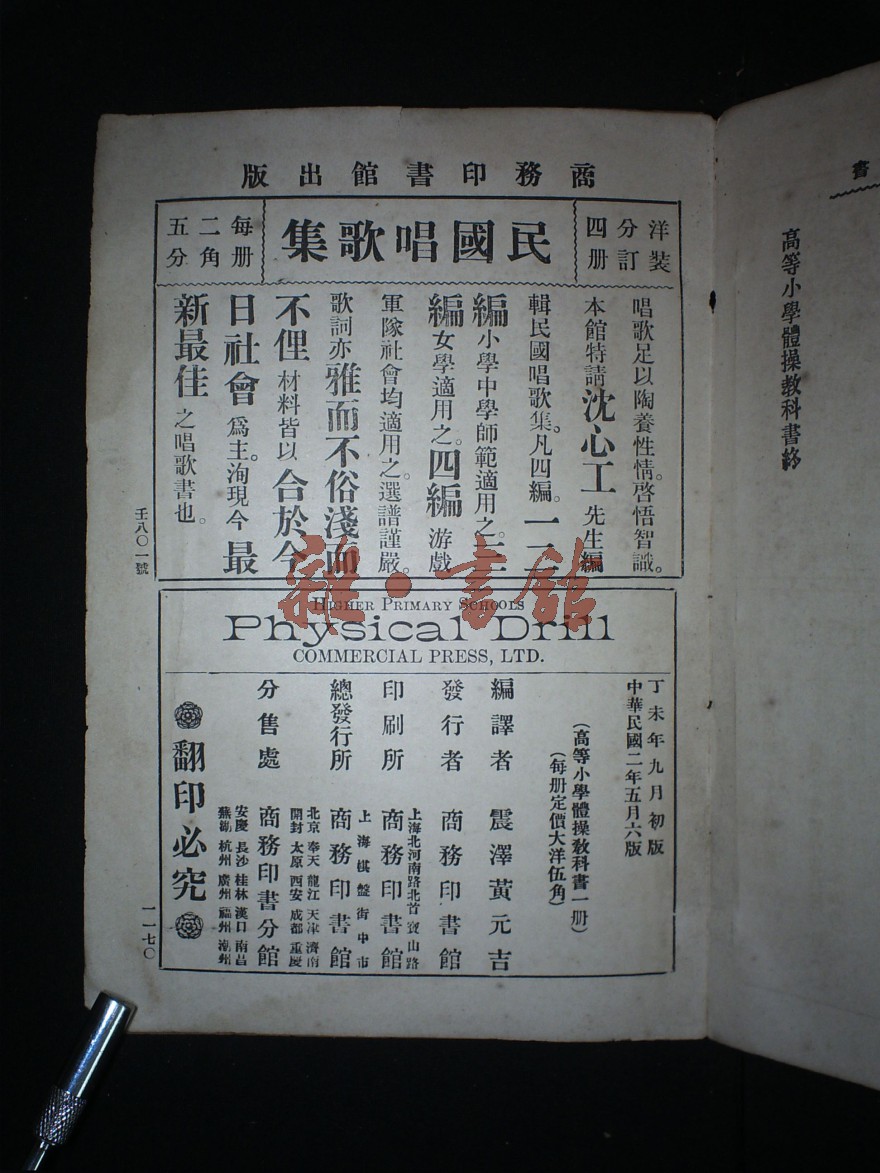 商務印書館出版
洋裝
分訂
四册
民國唱歌集
每册
二角
五分
唱歌足以陶養性情。啓悟智識。
本館特請沈心工先生編
輯民國唱歌集。凡四編。一二
編小學中學師範適用之。三
編女學適用之。四編游戲
軍隊社會均適用之。選譜謹嚴。
歌詞亦雅而不俗淺而
不俚材料皆以合於今
日社會爲主。洵現今最
新最佳之唱歌書也。
壬八〇一號
雜·書館
HIGHER PRIMARY SCHOOLS
Physical Drill
COMMERCIAL PRESS, LTD.
丁未年九月初版
中華民國二年五月六版
(高等小學體操教科書一册)
(每册定價大洋伍角)
編譯者 震澤黃元吉
發行者 商務印書館
上海北河南路北首寶山路
印刷所 商務印書館
上海棋盤街中市
總發行所 商務印書館
北京 奉天 龍江 天津 濟南
開封 太原 西安 成都 重慶
分售處 商務印書分館
安慶 長沙 桂林 漢口 南昌
蕪湖 杭州 廣州 福州 潮州
翻印必究
一一七〇
書
高等小學體操教科書終